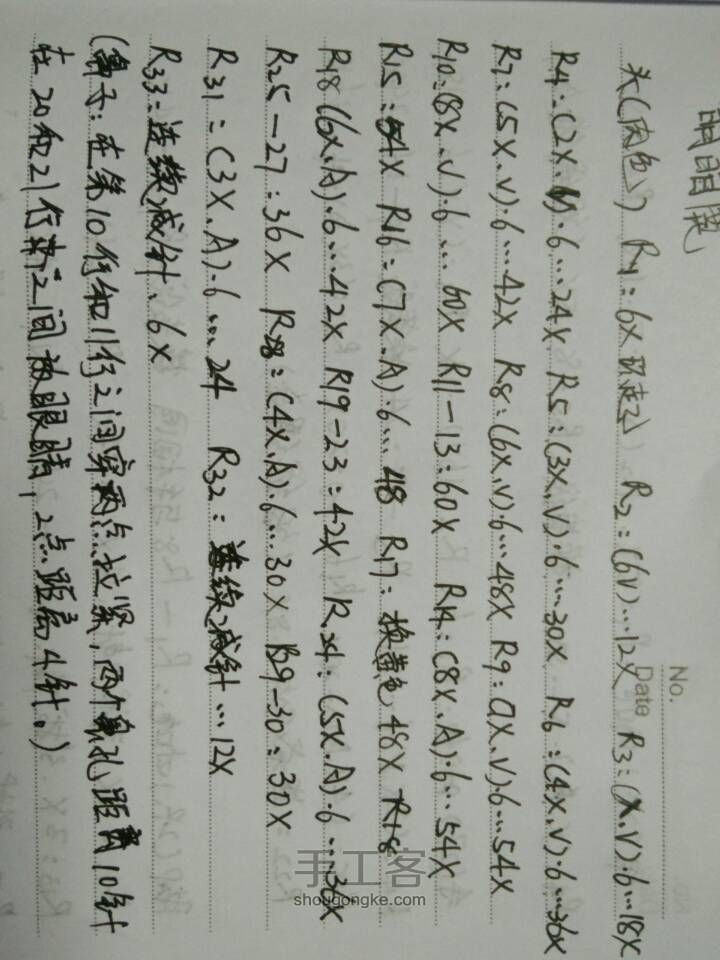 No.
Date
头(肉色) R1:6X 环起 R2:(6V)…12X R3:(X.V).6…18X
R4:(2X.V).6…24X R5:(3X.V).6…30X R6:(4X.V).6…36X
R7:(5X.V).6…42X R8:(6X.V).6…48X R9:(7X.V).6…54X
R10:(8X.V).6…60X R11-13:60X R14:(8X.A).6…54X
R15:54X R16:(7X.A).6…48 R17:换黄色 48X
R18(6X.A).6…42X R19-23:42X R24:(5X.A).6…36X
R25-27:36X R28:(4X.A).6…30X R29-30:30X
R31:(3X.A).6…24 R32:连续减针…12X
R33:连续减针、6X
(鼻子:在第10行和11行之间穿两点拉紧,两个鼻孔距离10针
在20和21行之间放眼睛,2点距离4针。)
手工客
shougongke.com